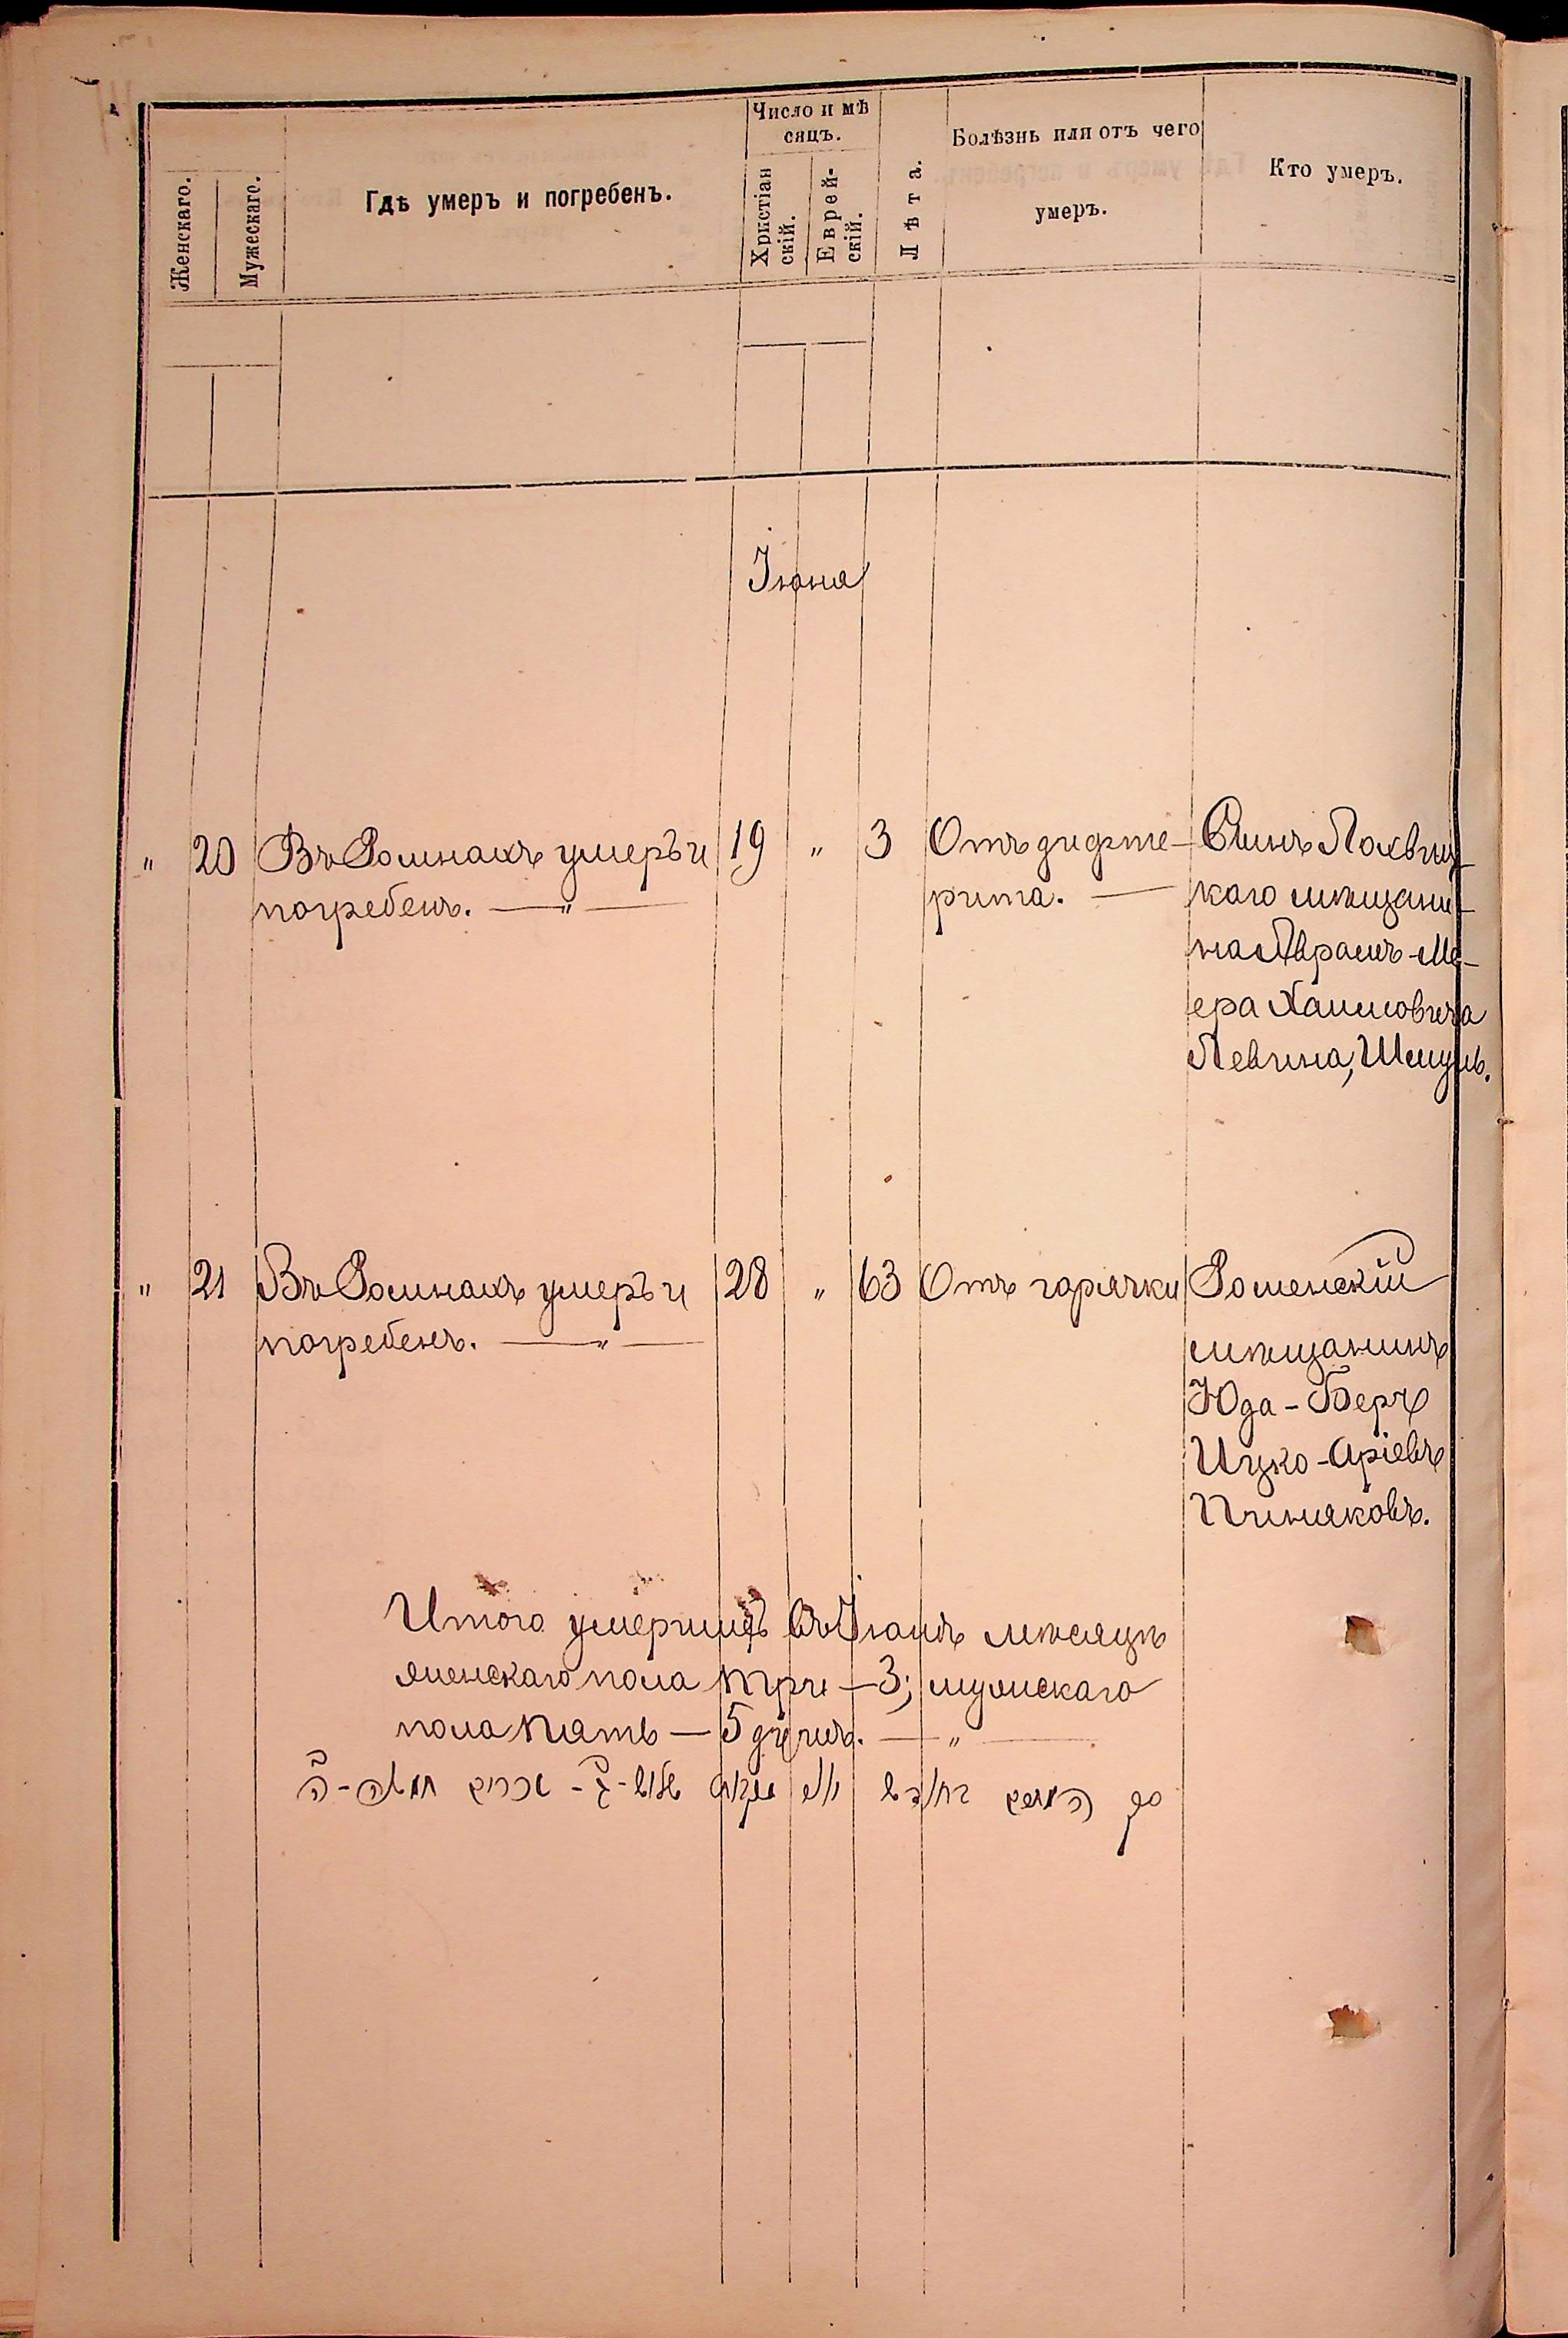 Женскаго.
Мужескаго.
Гдѣ умеръ и погребенъ.
Число и мѣ
сяцъ.
Христіан
скій.
Еврей-
скій.
Лѣта.
Болѣзнь или отъ чего
умеръ.
Кто умеръ.
Іюня
„ 20 Въ Ромнахъ умеръ и 19 „ 3 Отъ дифте- Сынъ Лохвиц-
погребенъ. — „ — рита. — каго мѣщани-
на Аврамъ-Ме-
ера Хаимовича
Левина, Шмуль.
„ 21 Въ Ромнахъ умеръ и 28 „ 63 Отъ горячки Роменскій
погребенъ. — „ — мѣщанинъ
Юда-Беръ
Ицко-Аріевъ
Итого умершихъ въ Іюнѣ мѣсяцѣ
женскаго пола три — 3; мужскаго
пола пять — 5 душъ. — „ —